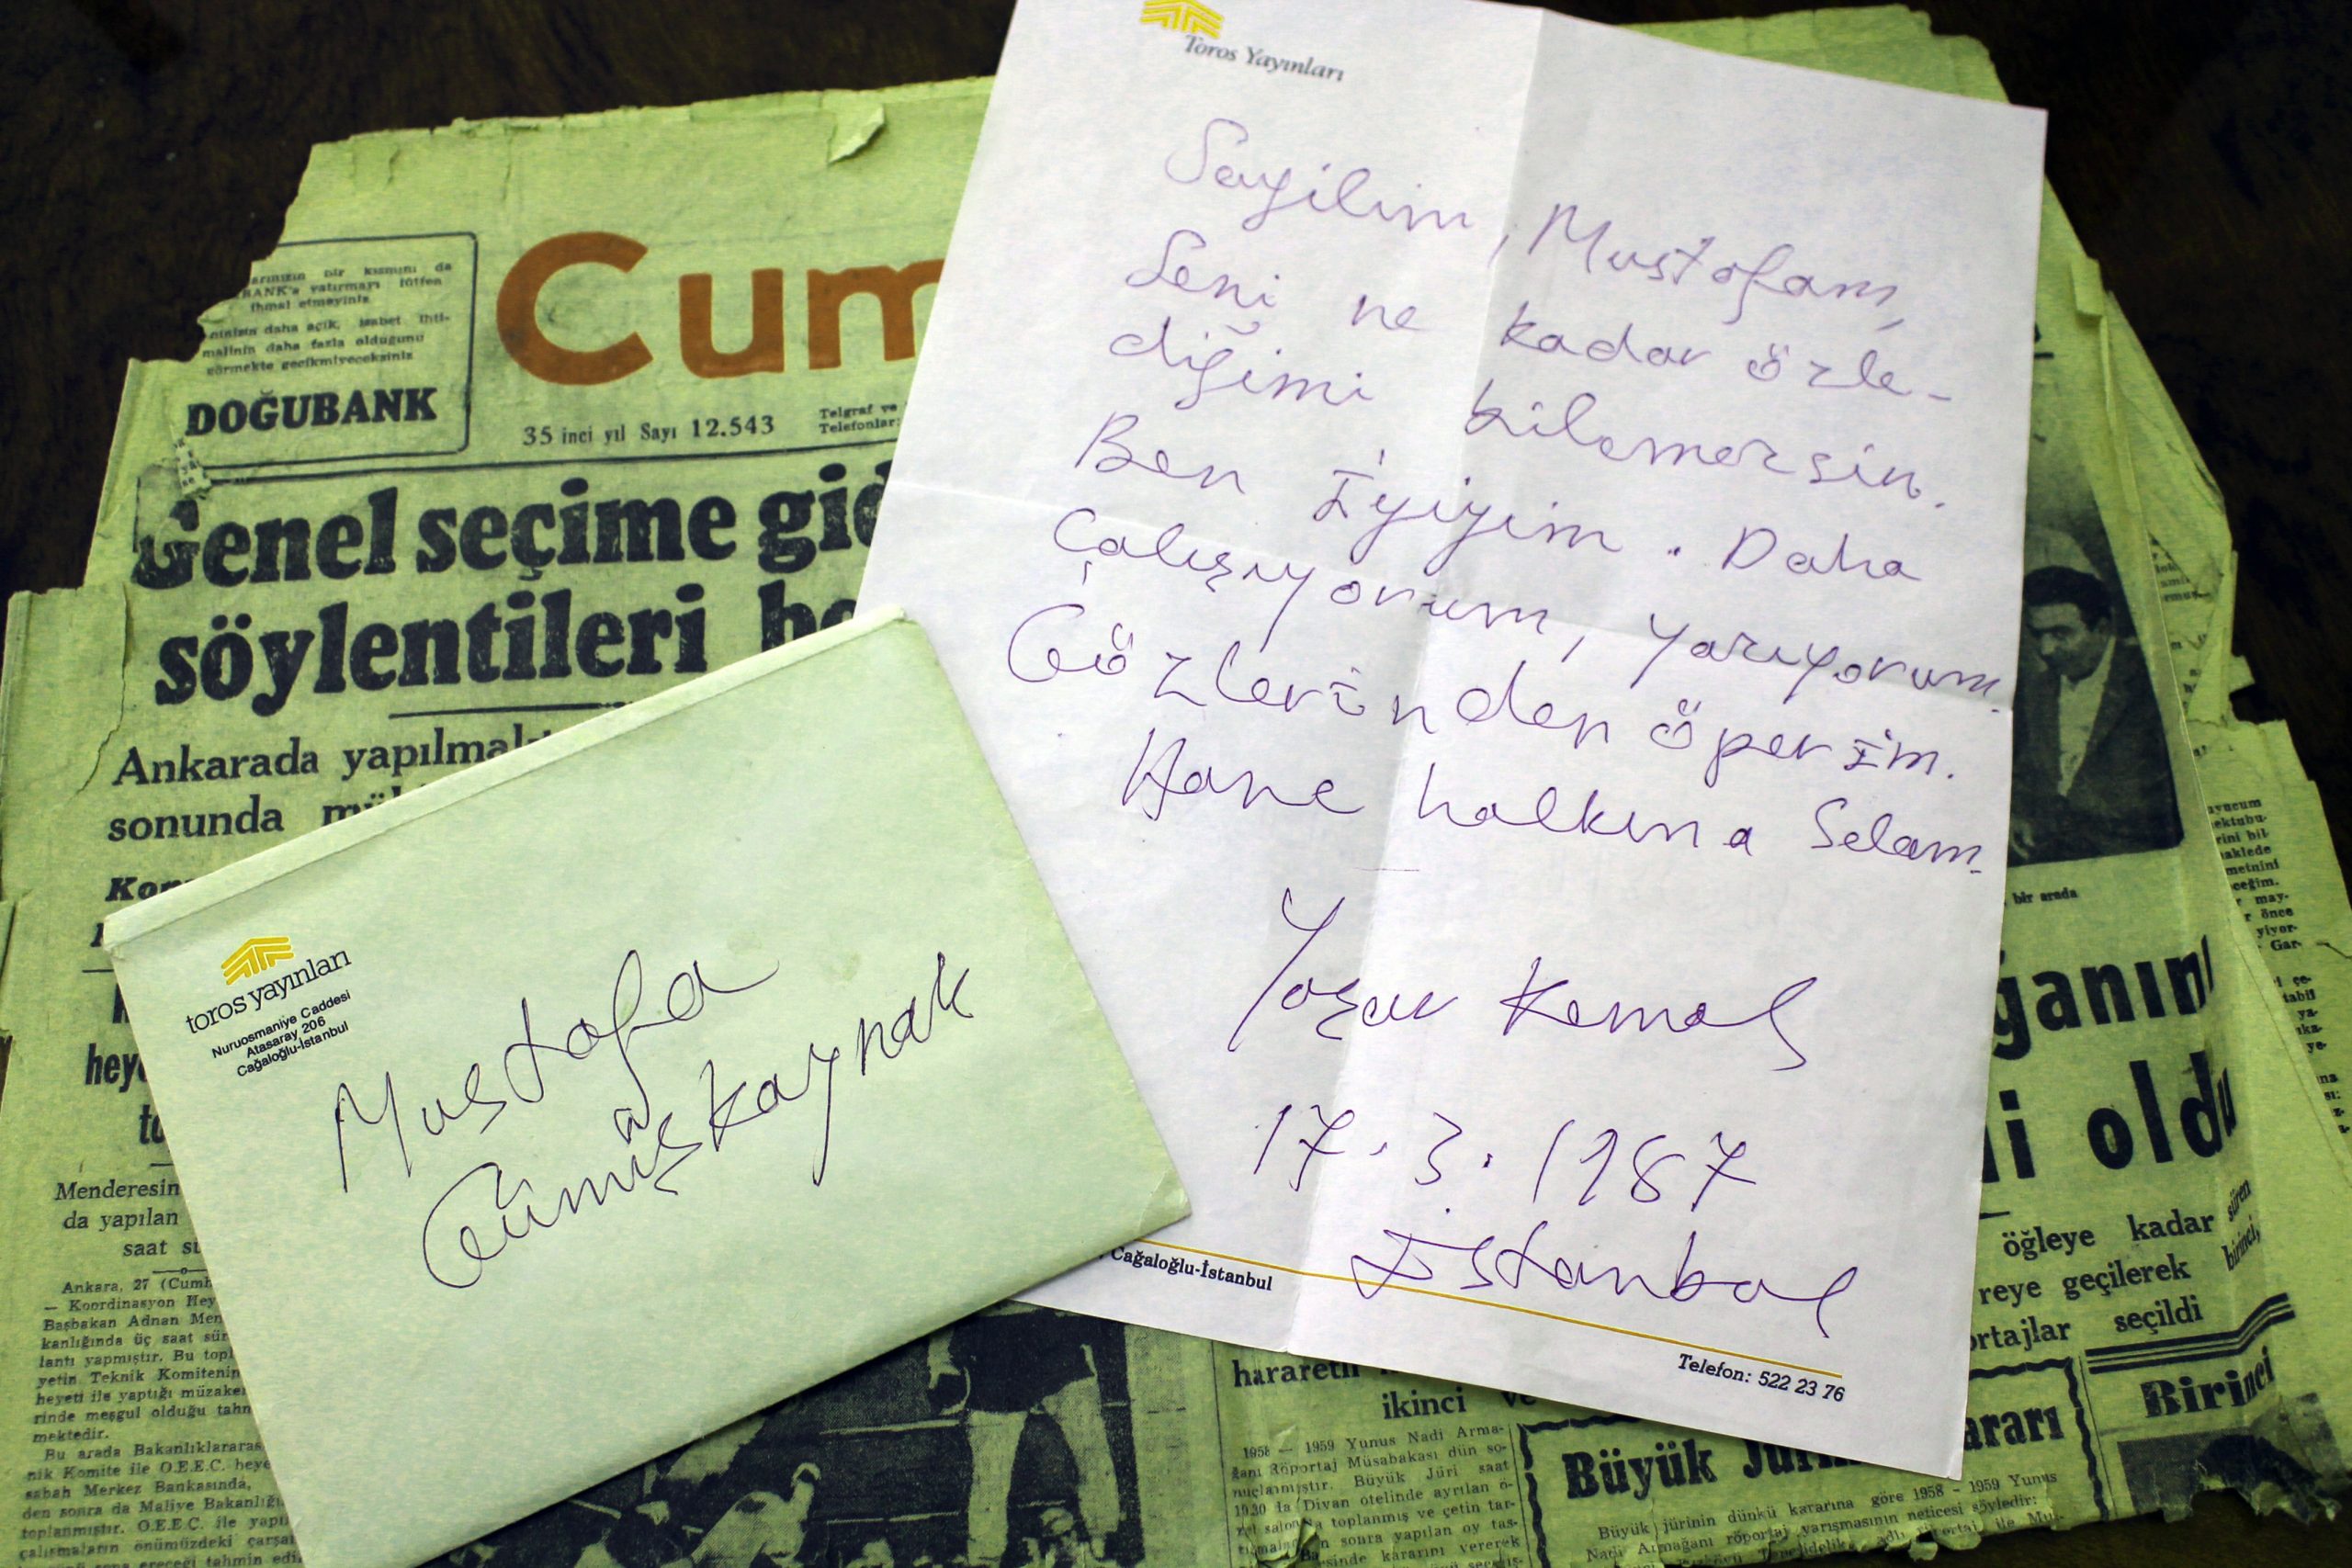 Toros Yayınları
Sevgilim, Mustafam,
Seni ne kadar özle-
diğimi bilemezsin.
Ben İyiyim. Daha
Çalışıyorum, Yazıyorum.
Gözlerinden öperim.
Hane halkına Selam.
Yaşar Kemal
17.3.1987
İstanbul
Cağaloğlu-İstanbul
Telefon: 522 23 76
toros yayınları
Nuruosmaniye Caddesi
Atasaray 206
Cağaloğlu-İstanbul
Mustafa
Gümüşkaynak
arınızın bir kısmını da
BANK'a yatırmayı lütfen
ihmal etmeyiniz
daha açık, isabet ihti-
malinin daha fazla olduğunu
görmekte gecikmiyeceksiniz
DOĞUBANK
Cum
35 inci yıl Sayı 12.543
Telgraf ve
Telefonlar:
Genel seçime gid
söylentileri
Ankarada yapılmak
sonunda
hey
Menderesin
da yapılan
saat
Ankara, 27 (Cumh
— Koordinasyon Hey
Başbakan Adnan Men
kanlığında üç saat sür
lantı yapmıştır. Bu topl
yetin Teknik Komitenin
heyeti ile yaptığı müzaker
rinde meşgul olduğu tahn
mektedir.
Bu arada Bakanlıklararas
nik Komite ile O.E.E.C. heye
sabah Merkez Bankasında,
den sonra da Maliye Bakanlığı
toplanmıştır. O.E.E.C. ile yapı
çalışmaların önümüzdeki çarşa
ereceği tahmin edi
bir arada
ğanını
oldu
öğleye kadar
reye geçilerek
ortajlar seçildi
süren
birinci,
hararetli
ikinci ve
1958 — 1959 Yunus Nadi Arma-
ğanı Röportaj Müsabakası dün so-
nuçlanmıştır. Büyük Jüri saat
Divan otelinde ayrılan
toplanmış ve çetin tar-
sonra yapılan oy tas-
kararını vererek
Büyük kararı
Birinci
Büyük jürinin dünkü kararına göre 1958 - 1959 Yunus
Nadi Armağanı röportaj yarışmasının neticesi şöyledir: